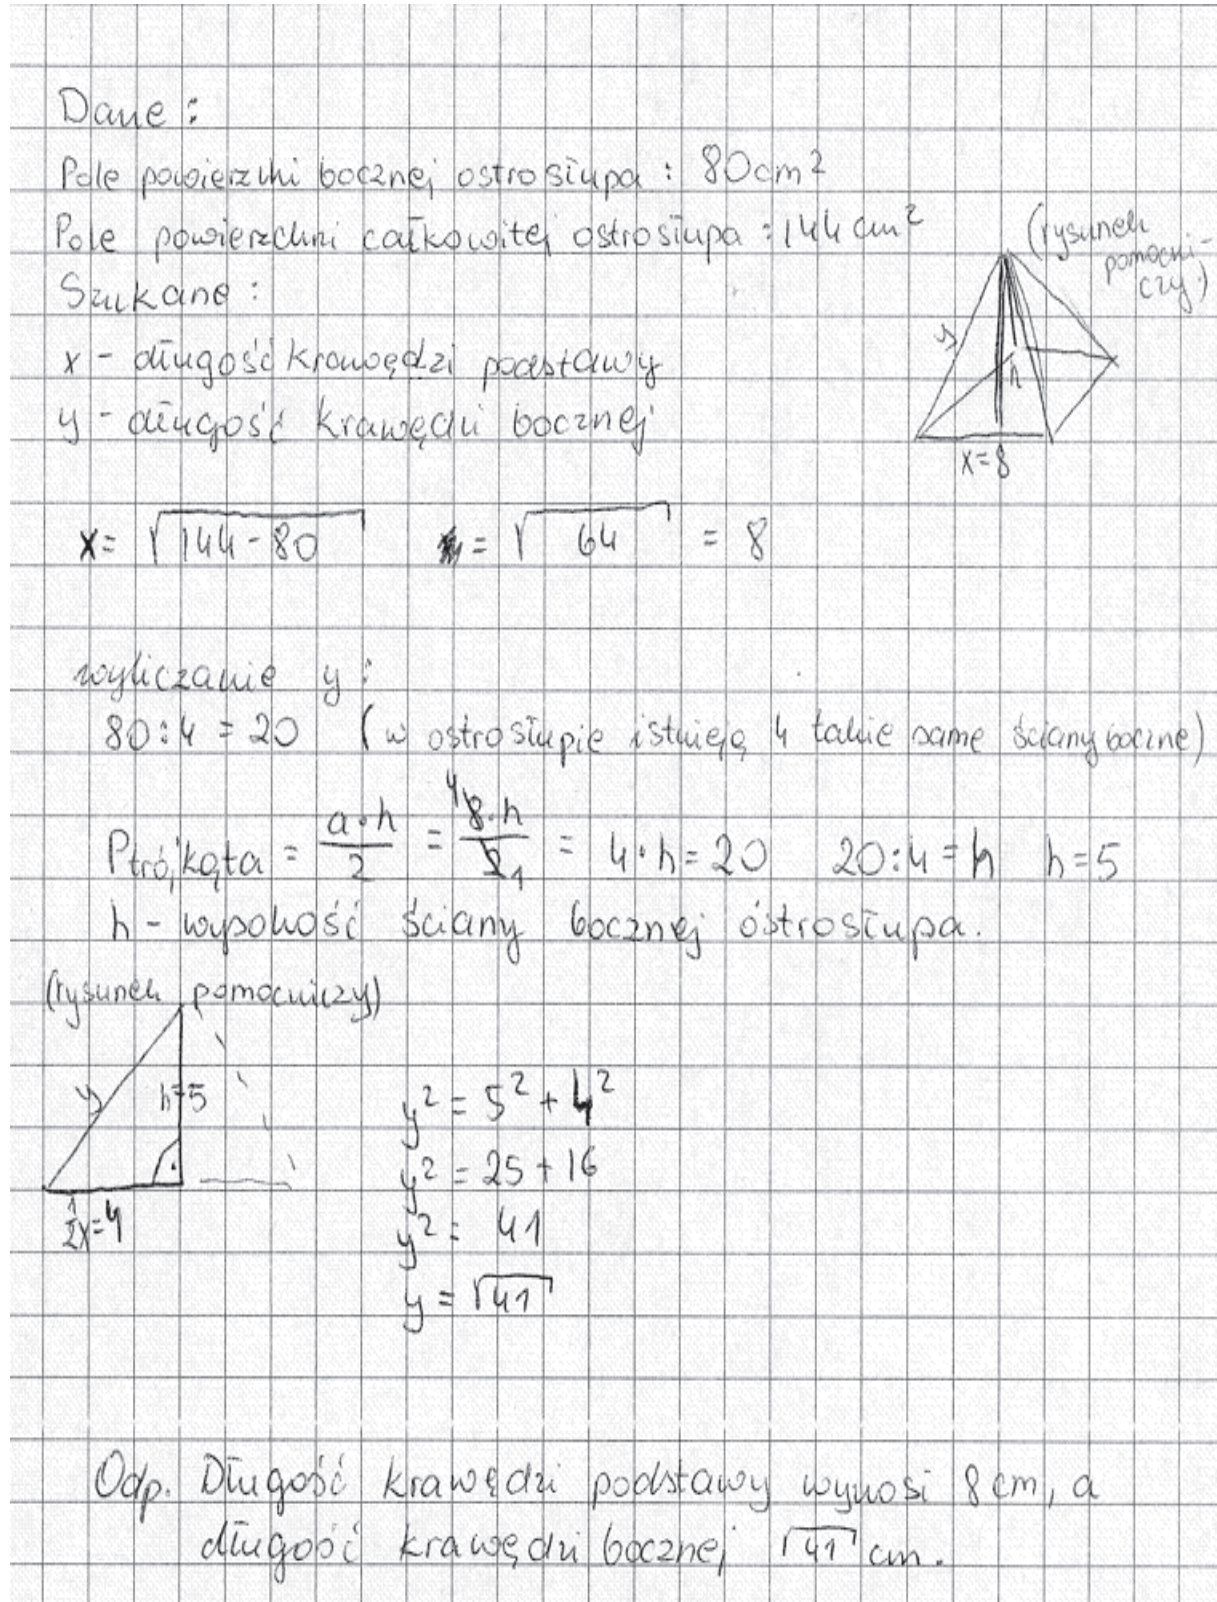 Dane:
Pole powierzchni bocznej ostrosłupa: 80cm²
Pole powierzchni całkowitej ostrosłupa: 144 cm²
(rysunek pomocniczy)
Szukane:
x - długość krawędzi podstawy
y - długość krawędzi bocznej
y
h
x=8
x= √(144-80) = √64 = 8
wyliczanie y:
80:4=20 (w ostrosłupie istnieją 4 takie same ściany boczne)
Ptrójkąta = a·h/2 = 8·h/2 = 4·h=20 20:4=h h=5
4 1
h - wysokość ściany bocznej ostrosłupa.
(rysunek pomocniczy)
y
h=5
½x=4
y² = 5² + 4²
y² = 25 + 16
y² = 41
y = √41
Odp. Długość krawędzi podstawy wynosi 8 cm, a
długość krawędzi bocznej √41 cm.